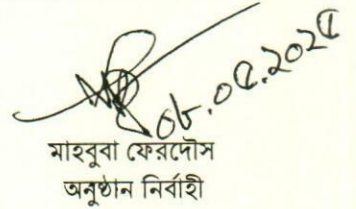 ০৮.০৫.২০২৫
মাহবুবা ফেরদৌস
অনুষ্ঠান নির্বাহী